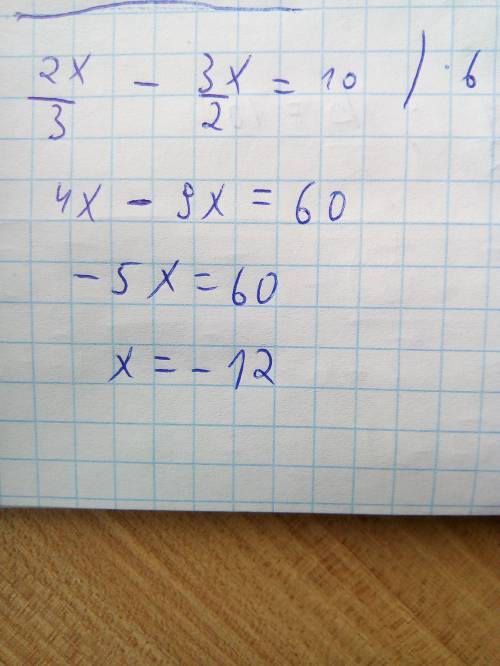 2x/3 - 3x/2 = 10 / · 6
4x - 9x = 60
- 5x = 60
x = - 12